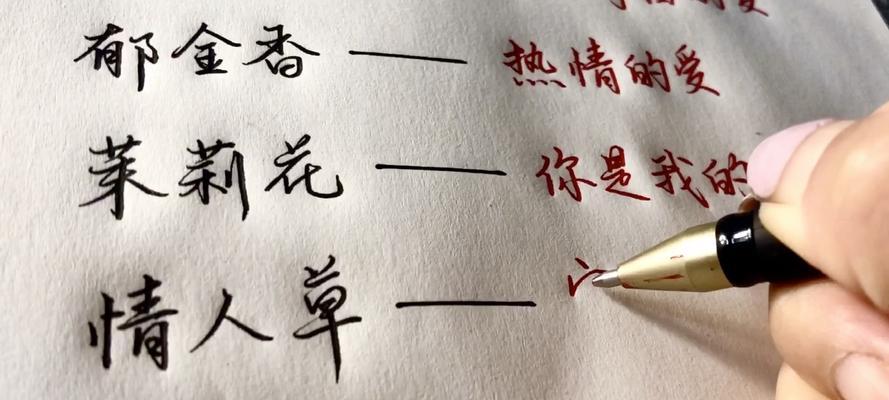 郁金香——热情的爱
茉莉花——你是我的
情人草——